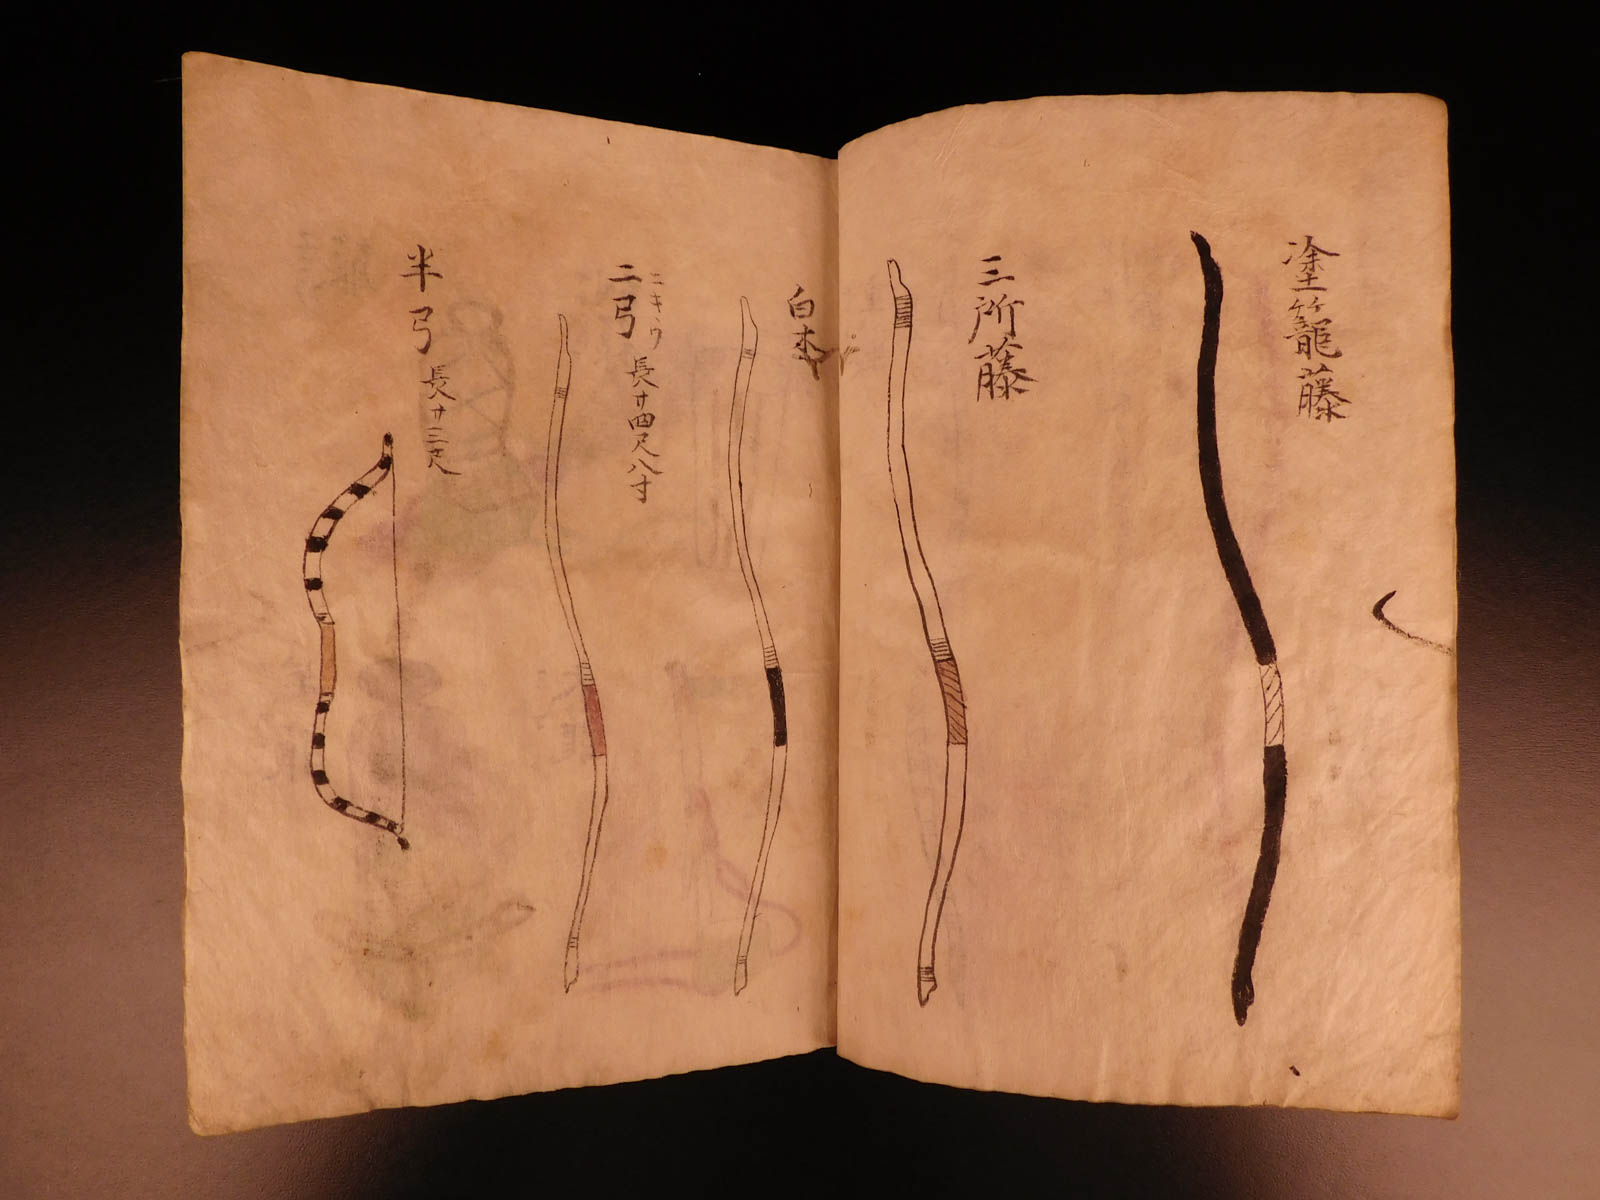 塗籠藤
三所藤
白木
二弓
ニキウ
長サ四尺八寸
半弓
長サ三尺